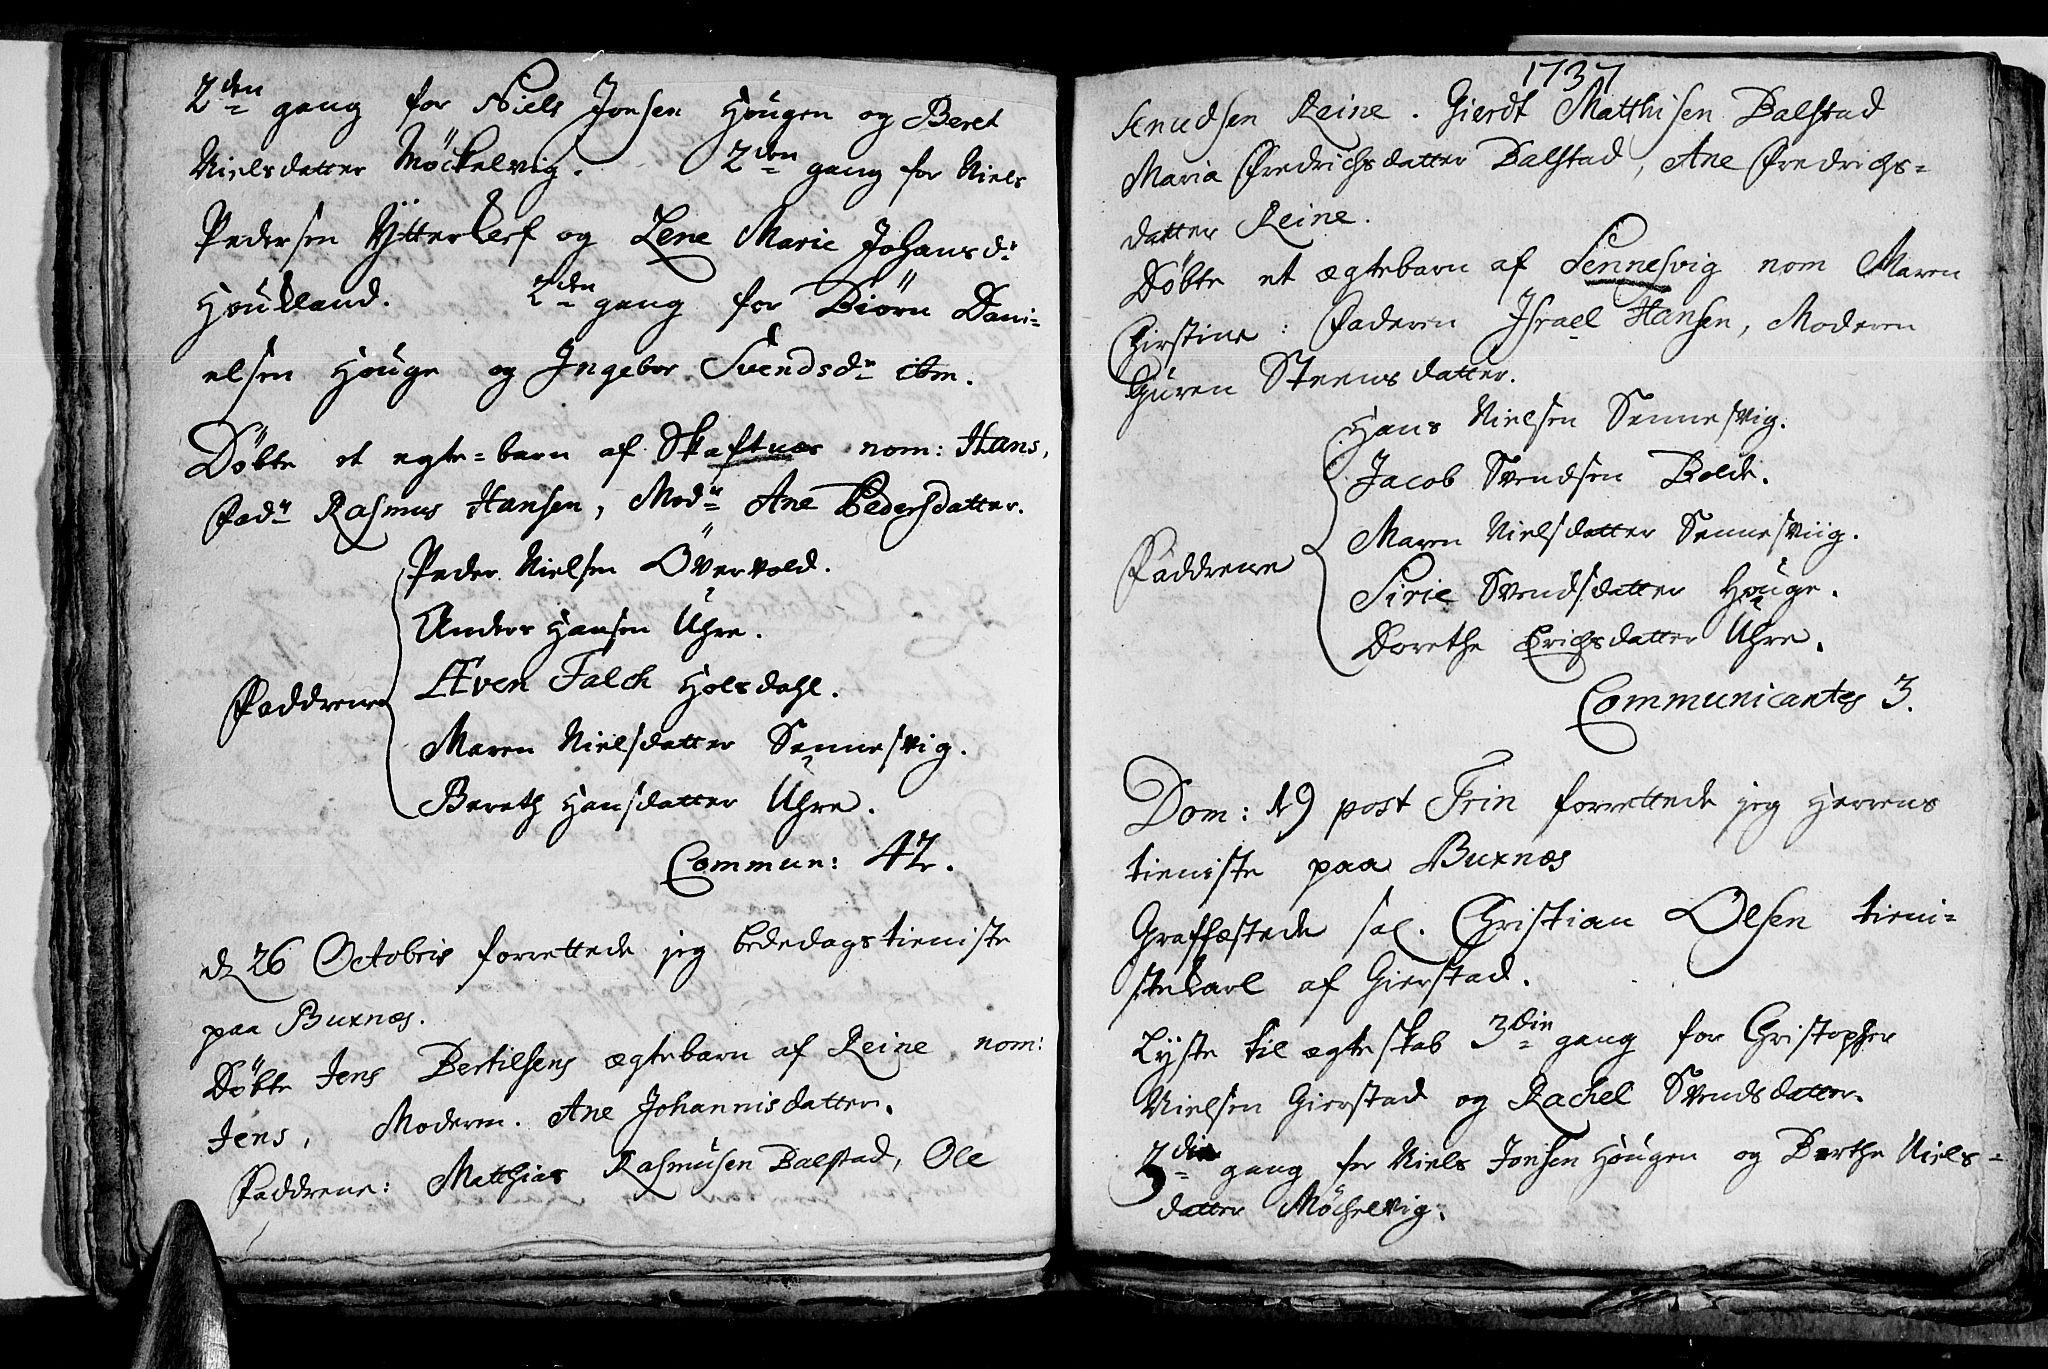 2den gang for Niels Jonsen Hougen og Beret
Nielsdatter Möckelvig. 2den gang for Niels
Pedersen Ytterlef og Lene Marie Johansdr
Houkland. 2den gang for Biörn Dani-
elsen Houge og Ingebor Svendsdr item.
Döbte et egte-barn af Skaftnæs nom: Hans,
Fadr Rasmus Hansen, Modr Ane Pedersdatter.
Peder Nielsen Övervold.
Anders Hansen Uhre.
Even Falck Holsdahl.
Faddrene
Maren Nielsdatter Sennesvig.
Bereth Hansdatter Uhre.
Commun: 42.
d 26 Octobris forrettede jeg bededags tieniste
paa Buxnæs.
Döbte Jens Bertilsens ægtebarn af Reine nom:
Jens, Moderen. Ane Johannisdatter.
Faddrene: Matthias Rasmusen Balstad, Ole
1737
Knudsen Reine. Gierdt Matthisen Balstad
Maria Fredrichsdatter Balstad, Ane Fredrichs-
datter Reine.
Döbte et ægtebarn af Sennesvig nom Maren
Chirstine: Faderen Israel Hansen, Moderen
Guren Steensdatter.
Hans Nielsen Sennesvig.
Jacob Svendsen Bolde.
Maren Nielsdatter Sennesviig.
Faddrene
Sirie Svendsdatter Houge.
Dorethe Erichsdatter Uhre.
Communicantes 3.
Dom: 19 post Trin forrettede jeg Herrens
tieniste paa Buxnæs
Graffæstede sal. Christian Olsen tieni-
stekarl af Gierstad.
Lyste til ægteskab 3die gang for Christopher
Nielsen Gierstad og Rachel Svendsdatter.
3die gang for Niels Jonsen Hougen og Berthe Niels-
datter Möchelvig.